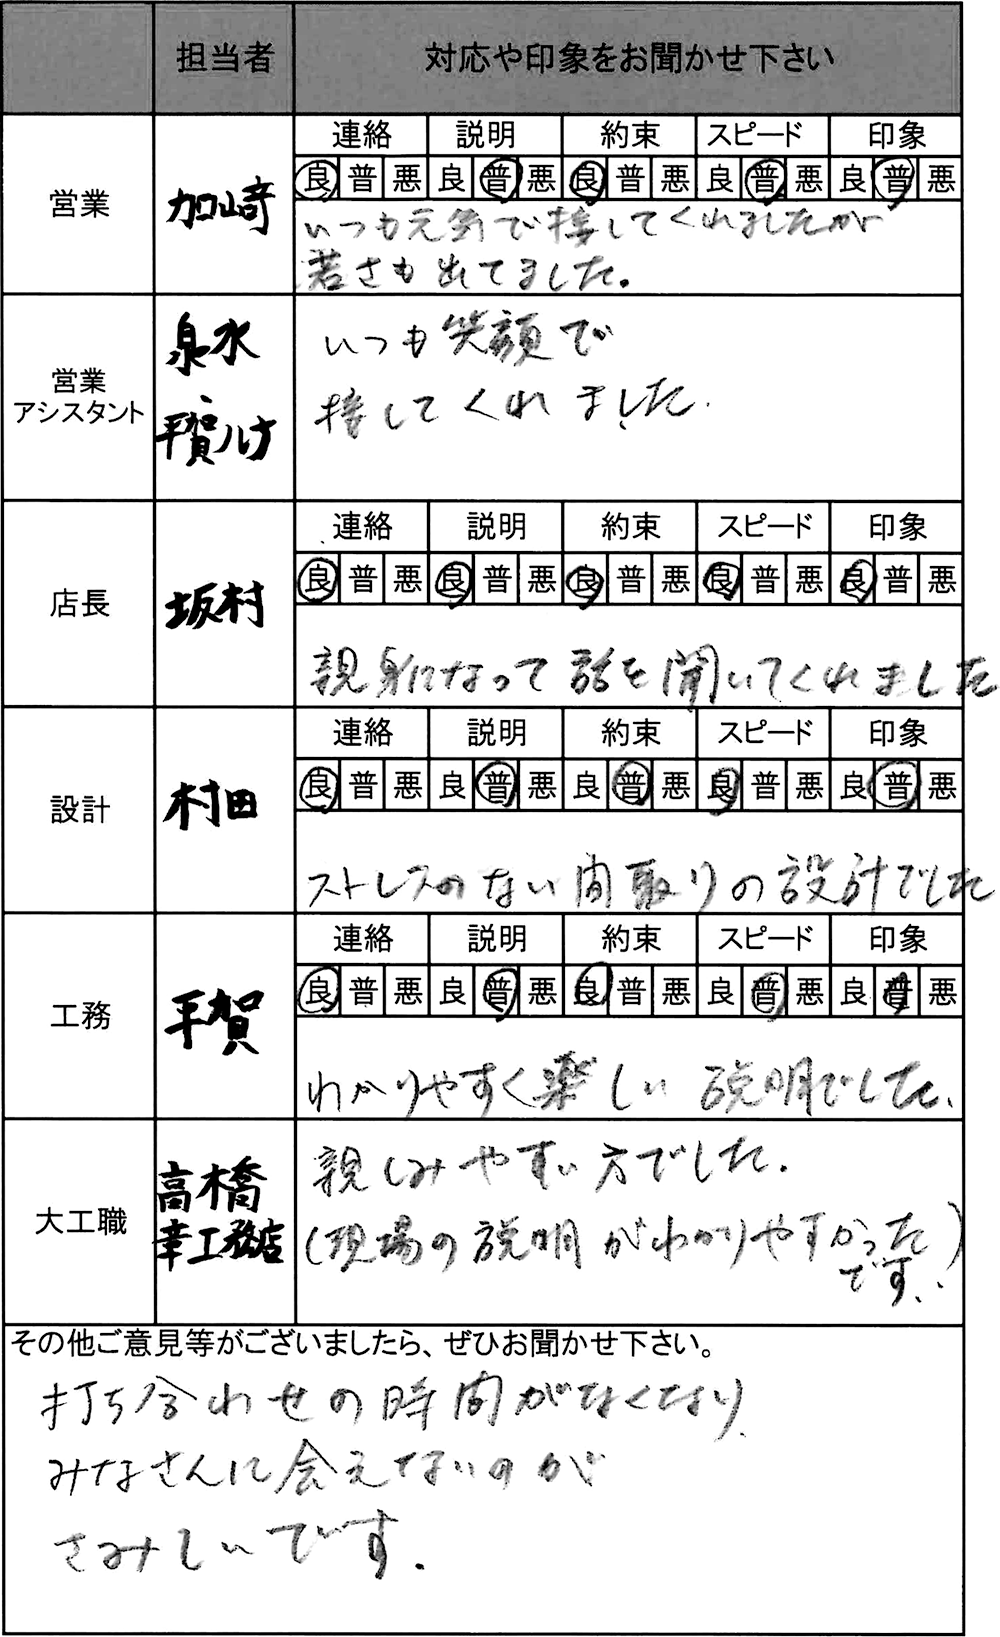 担当者 対応や印象をお聞かせ下さい
連絡 説明 約束 スピード 印象
良 普 悪 良 普 悪 良 普 悪 良 普 悪 良 普 悪
営業 加﨑
いつも元気で接してくれましたが
若さも出てました。
営業
アシスタント
泉水
平賀
いつも笑顔で
接してくれました.
連絡 説明 約束 スピード 印象
良 普 悪 良 普 悪 良 普 悪 良 普 悪 良 普 悪
店長 坂村
親身になって話を聞いてくれました
連絡 説明 約束 スピード 印象
良 普 悪 良 普 悪 良 普 悪 良 普 悪 良 普 悪
設計 村田
ストレスのない間取りの設計でした
連絡 説明 約束 スピード 印象
良 普 悪 良 普 悪 良 普 悪 良 普 悪 良 普 悪
工務 平賀
わかりやすく楽しい説明でした、
大工職
高橋
幸工務店
親しみやすい方でした.
(現場の説明がわかりやすかった
です..)
その他ご意見等がございましたら、ぜひお聞かせ下さい。
打ち合わせの時間がなくなり
みなさんに会えないのが
さみしいです.